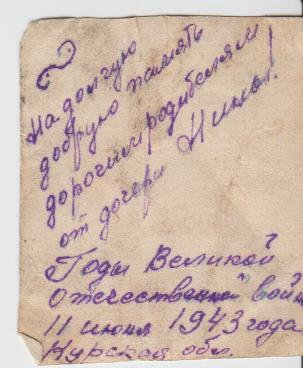 На долгую
добрую память
дорогим родителям
от дочери Нины!
Годы Великой
Отечественной войн
11 июня 1943 года
Курская обл.